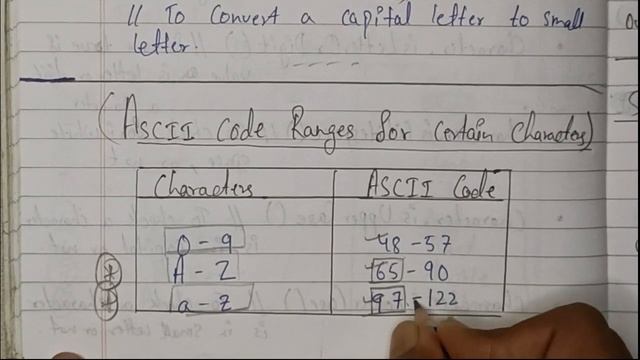 // To convert a capital letter to small
letter.
(ASCII Code Ranges for Certain Characters)
Characters ASCII Code
0 - 9 48 - 57
A - Z 65 - 90
a - z 97 - 122